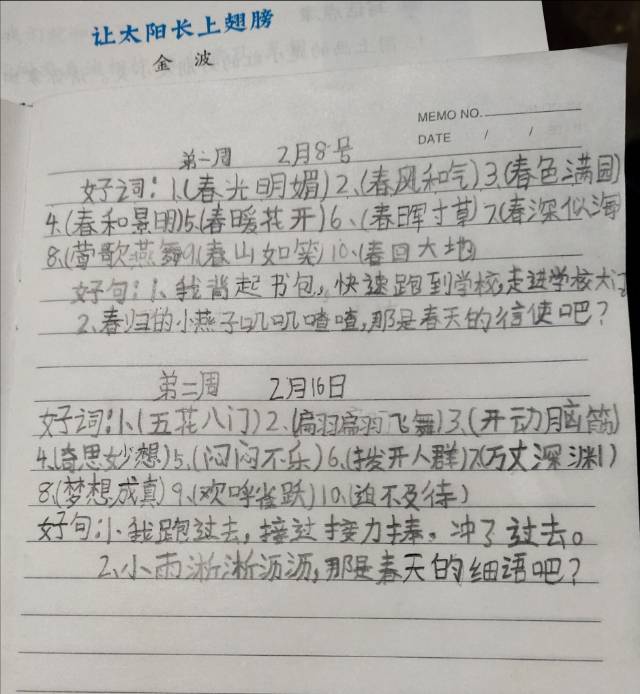 让太阳长上翅膀
金 波
MEMO NO.
DATE / /
第一周 2月8号
好词:1.(春光明媚)2、(春风和气)3.(春色满园)
4.(春和景明)5.(春暖花开)6、(春晖寸草)7.(春深似海
8.(莺歌燕舞)9.(春山如笑)10.(春回大地)
好句:1、我背起书包,快速跑到学校,走进学校大门
2、春归的小燕子叽叽喳喳,那是春天的信使吧?
第二周 2月16日
好词:1、(五花八门)2、(翩翩飞舞)3.(开动脑筋)
4.(奇思妙想)5.(闷闷不乐)6.(拨开人群)7.(万丈深渊)
8.(梦想成真)9.(欢呼雀跃)10.(迫不及待)
好句:1、我跑过去,接过接力棒。冲了过去。
2、小雨淅淅沥沥,那是春天的细语吧?